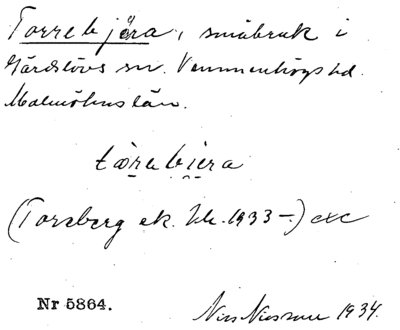 Torrebjära, småbruk i
Gärdslövs sn. Vemmenhögs hd.
Malmöhus län.
tɷrebiera
(Torsberg ek. 1933–) exc
Nr 5864. Nils Nilsson 1934.